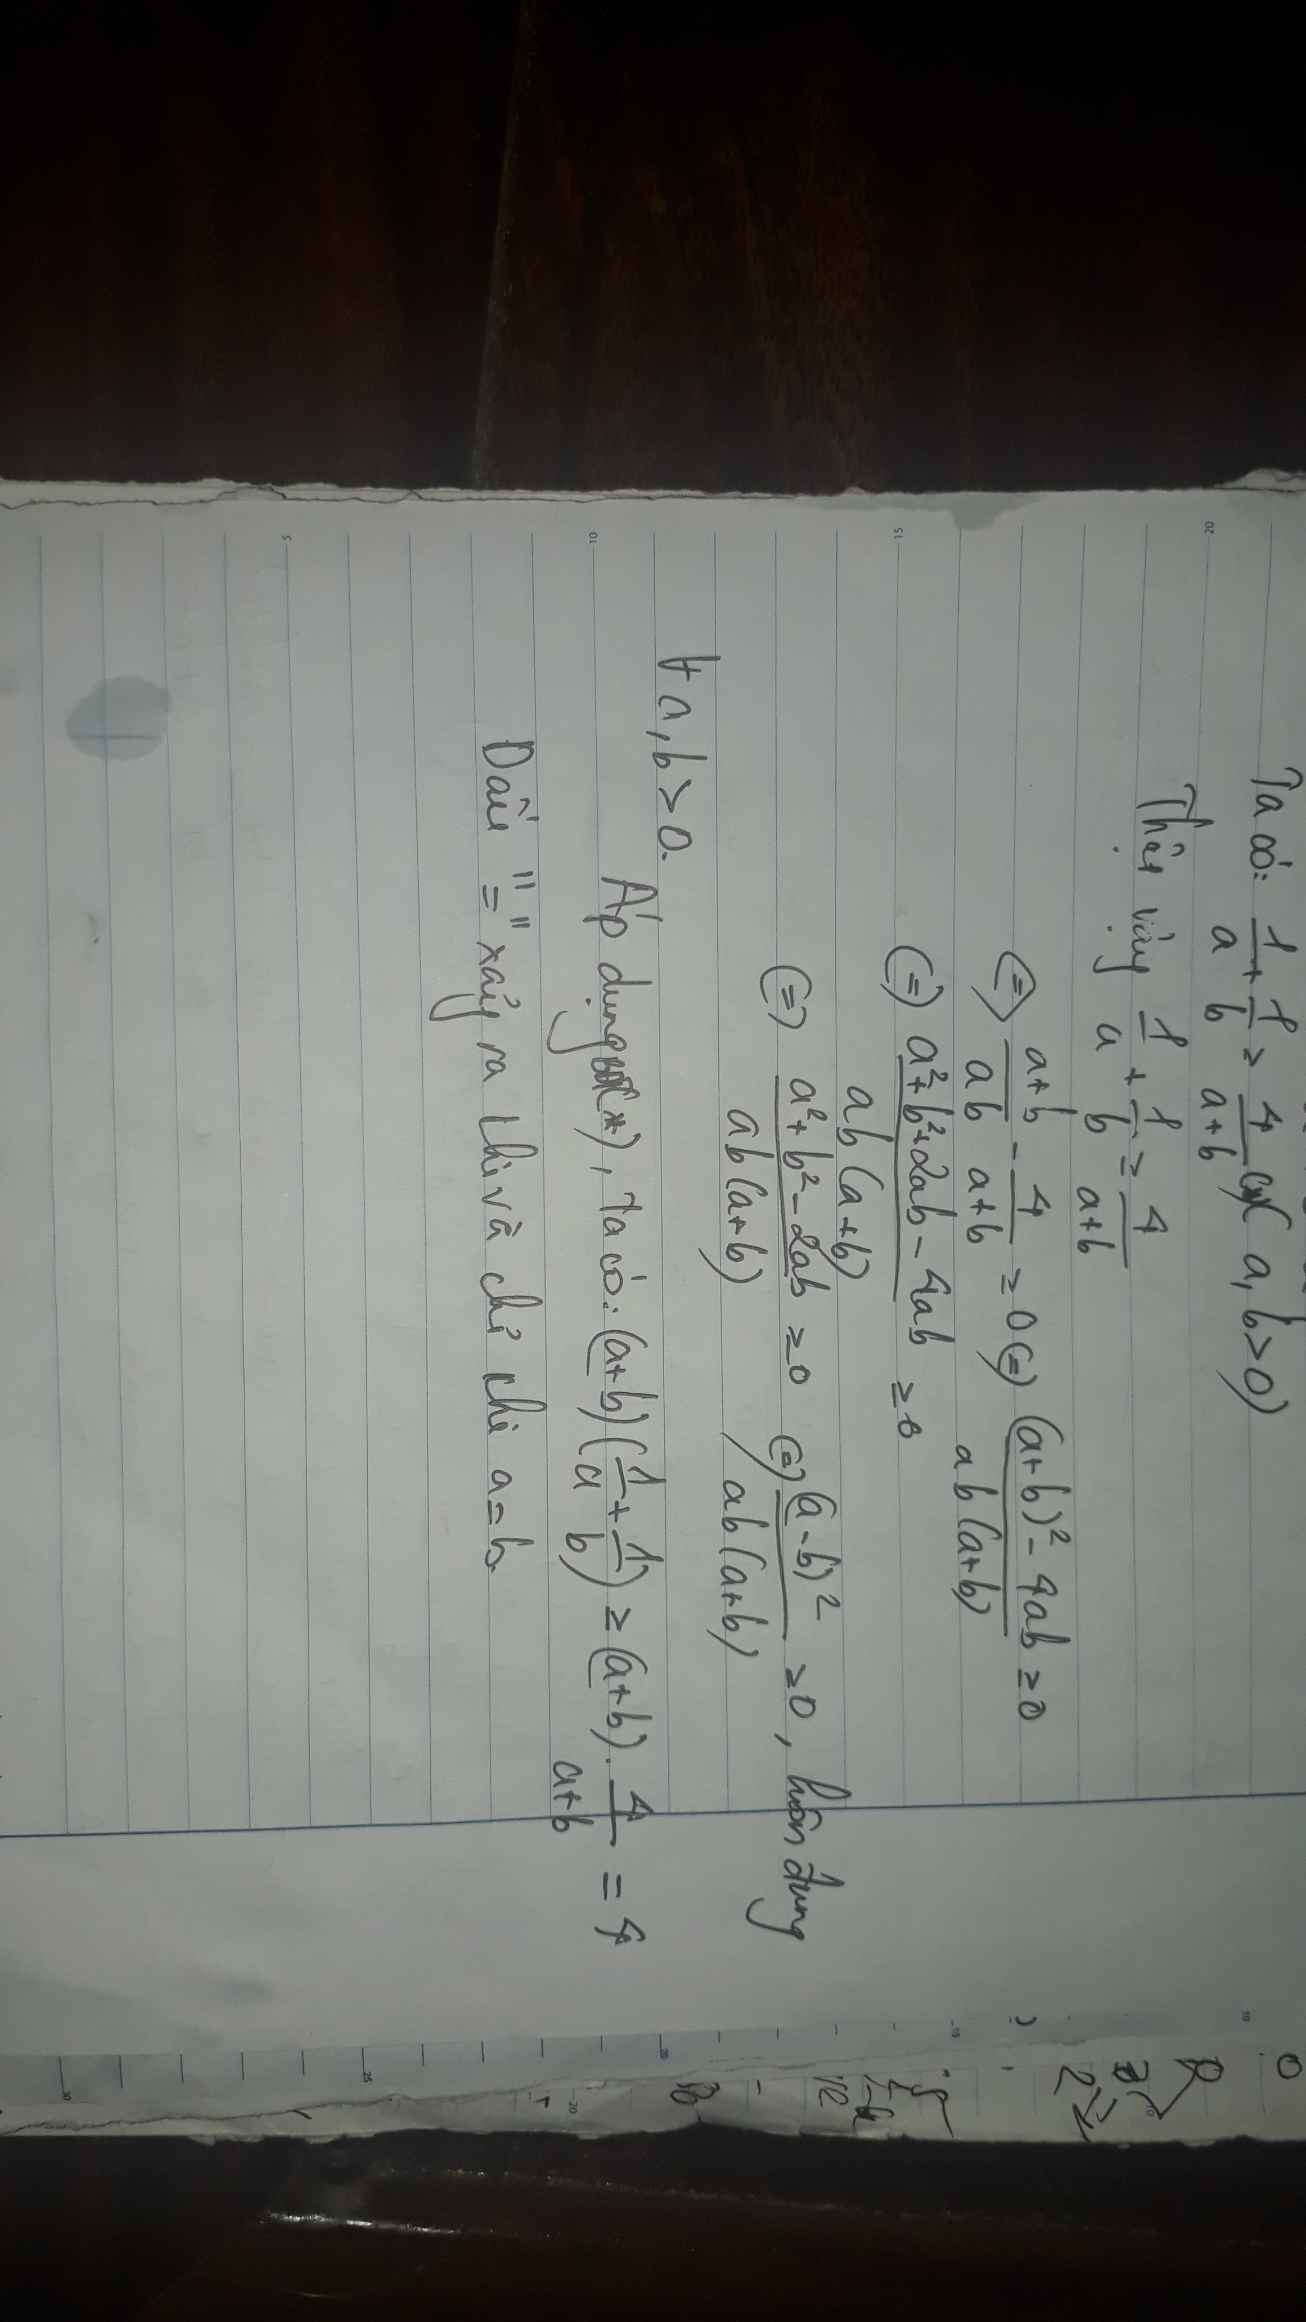 Ta có: 1/a + 1/b ≥ 4/(a+b) (*) (a, b > 0)
Thật vậy 1/a + 1/b ≥ 4/(a+b)
(=) (a+b)/ab - 4/(a+b) ≥ 0 (=) ((a+b)² - 4ab)/(ab(a+b)) ≥ 0
(=) (a² + b² + 2ab - 4ab)/(ab(a+b)) ≥ 0
(=) (a² + b² - 2ab)/(ab(a+b)) ≥ 0 (=) (a-b)²/(ab(a+b)) ≥ 0, luôn đúng
∀ a, b > 0.
Áp dụng (*), ta có: (a+b)(1/a + 1/b) ≥ (a+b). 4/(a+b) = 4
Dấu "=" xảy ra khi và chỉ khi a = b.